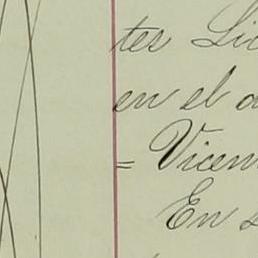 tes Lic
en el a
= Vicen
En s